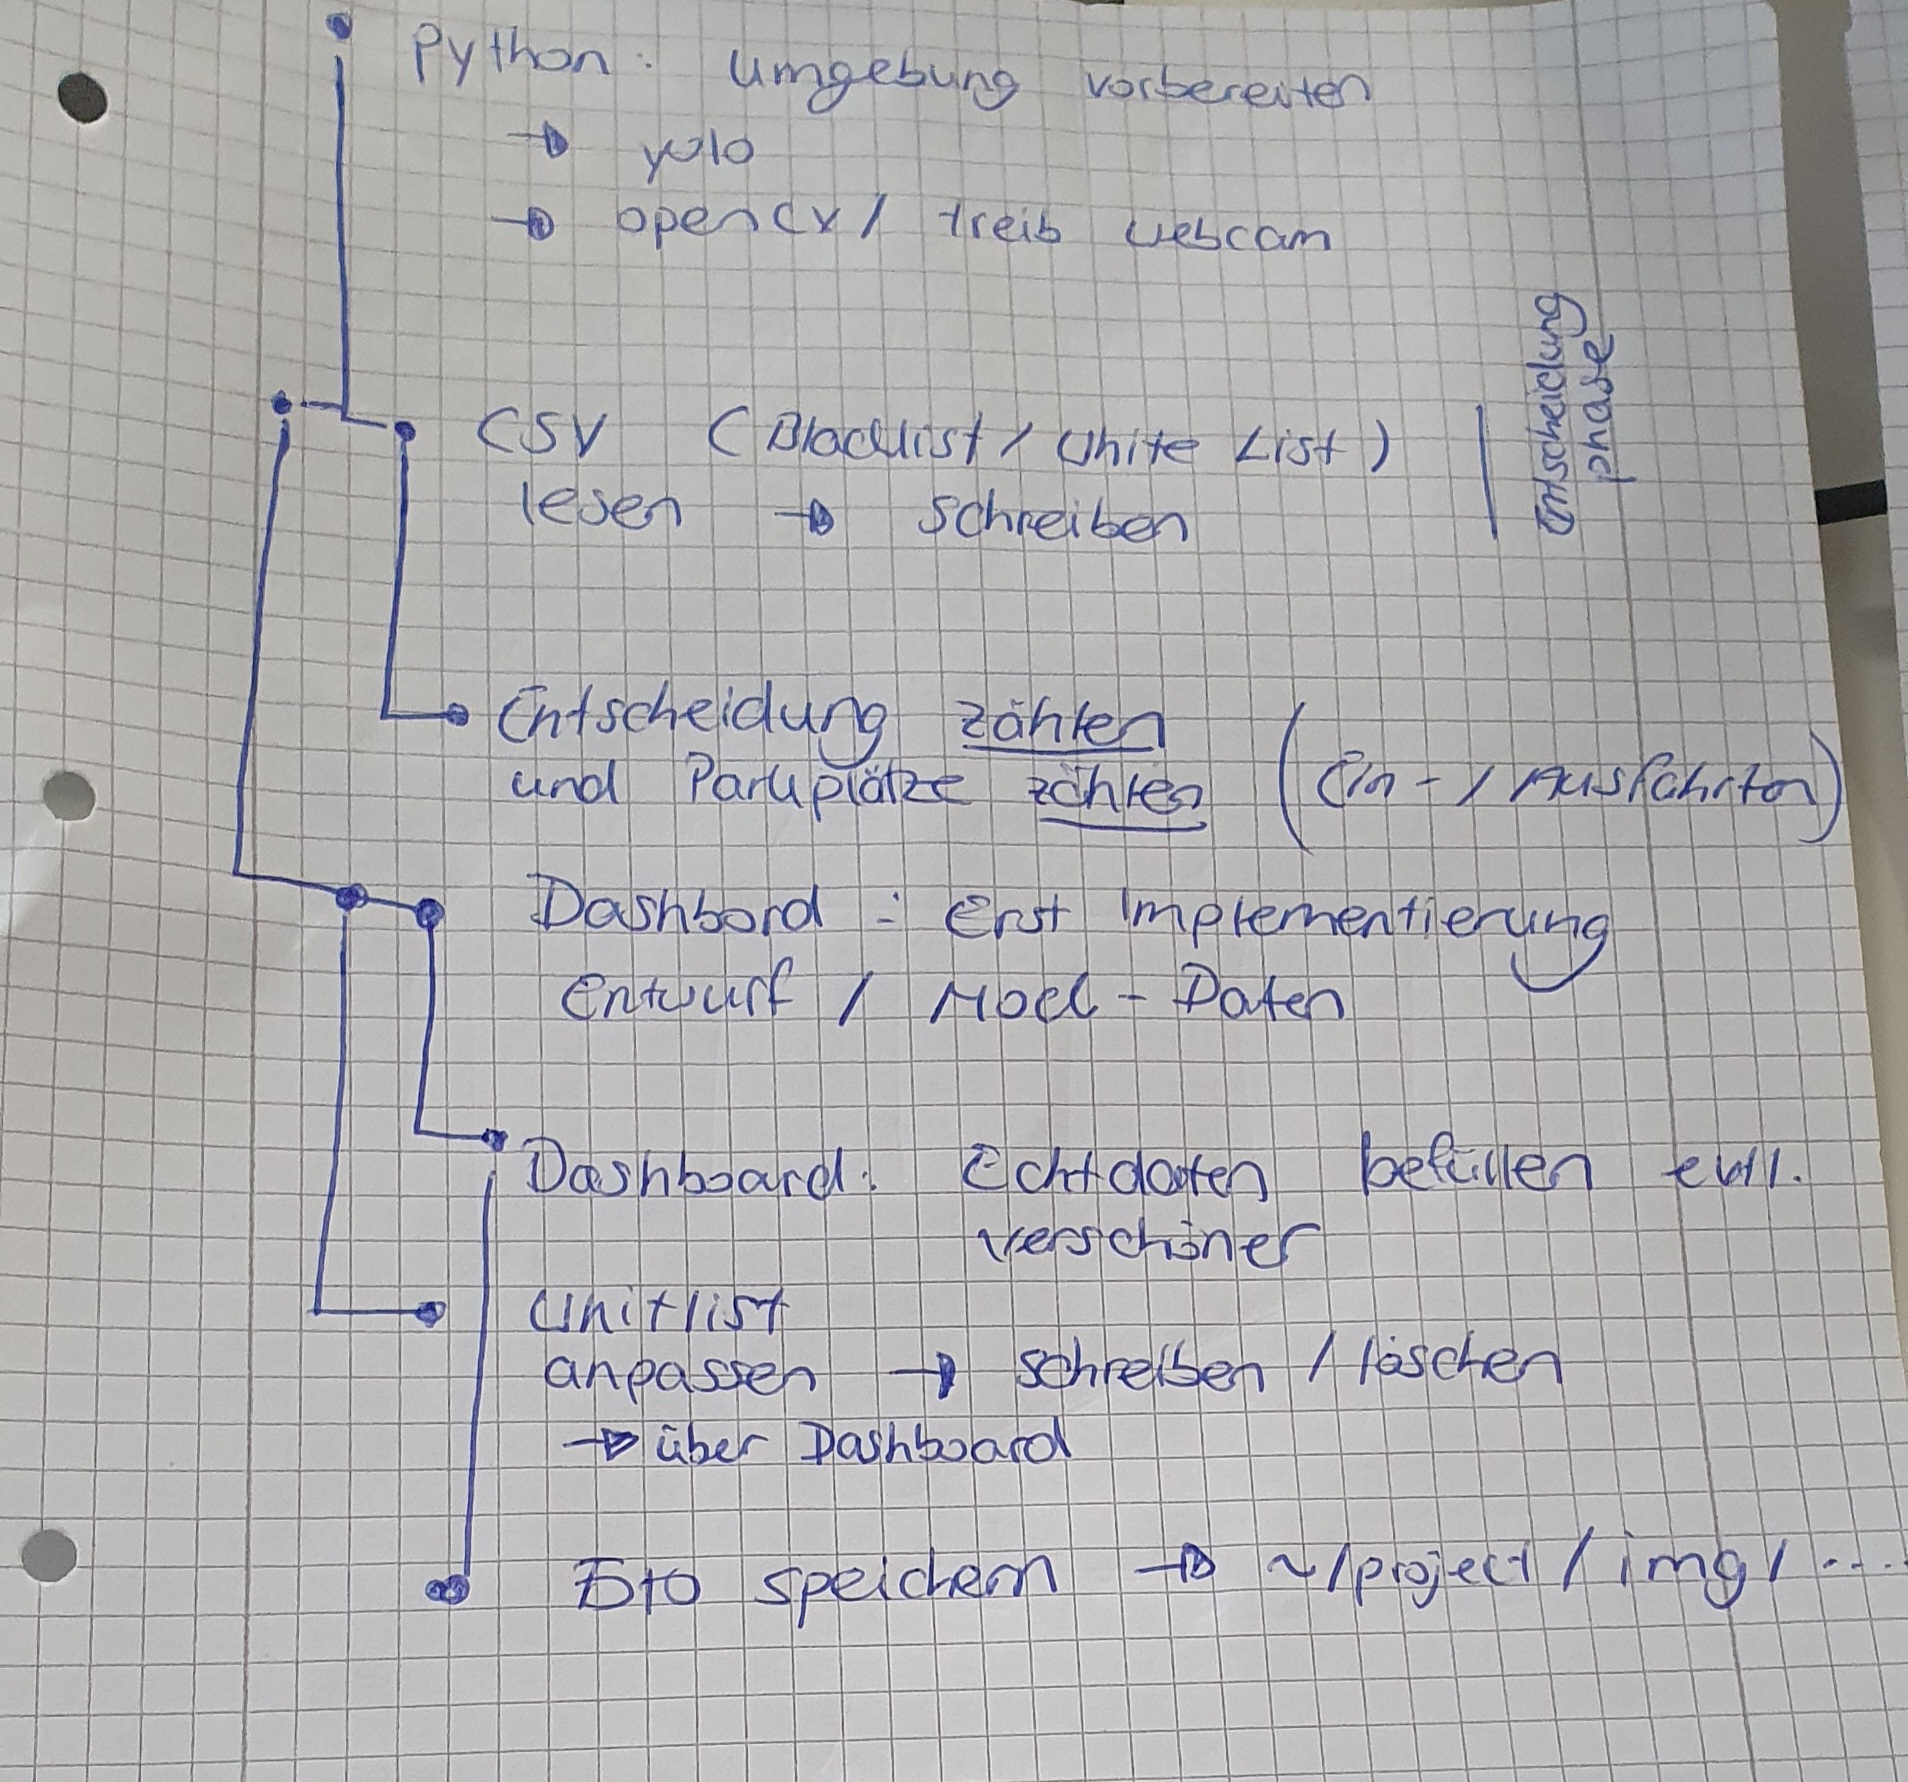 Python: Umgebung vorbereiten
→ yolo
→ opencv / treib webcam
Entscheidung
phase
CSV (Blacklist / White List)
lesen → schreiben
Entscheidung zählen
und Parkplätze zählen (Ein- / Ausfahrten)
Dashbord: Erst Implementierung
Entwurf / Mock-Daten
Dashboard: Echtdaten befüllen evtl.
verschöner
Whitlist
anpassen → schreiben / löschen
→ über Dashboard
Foto speichern → ~/project/img/...